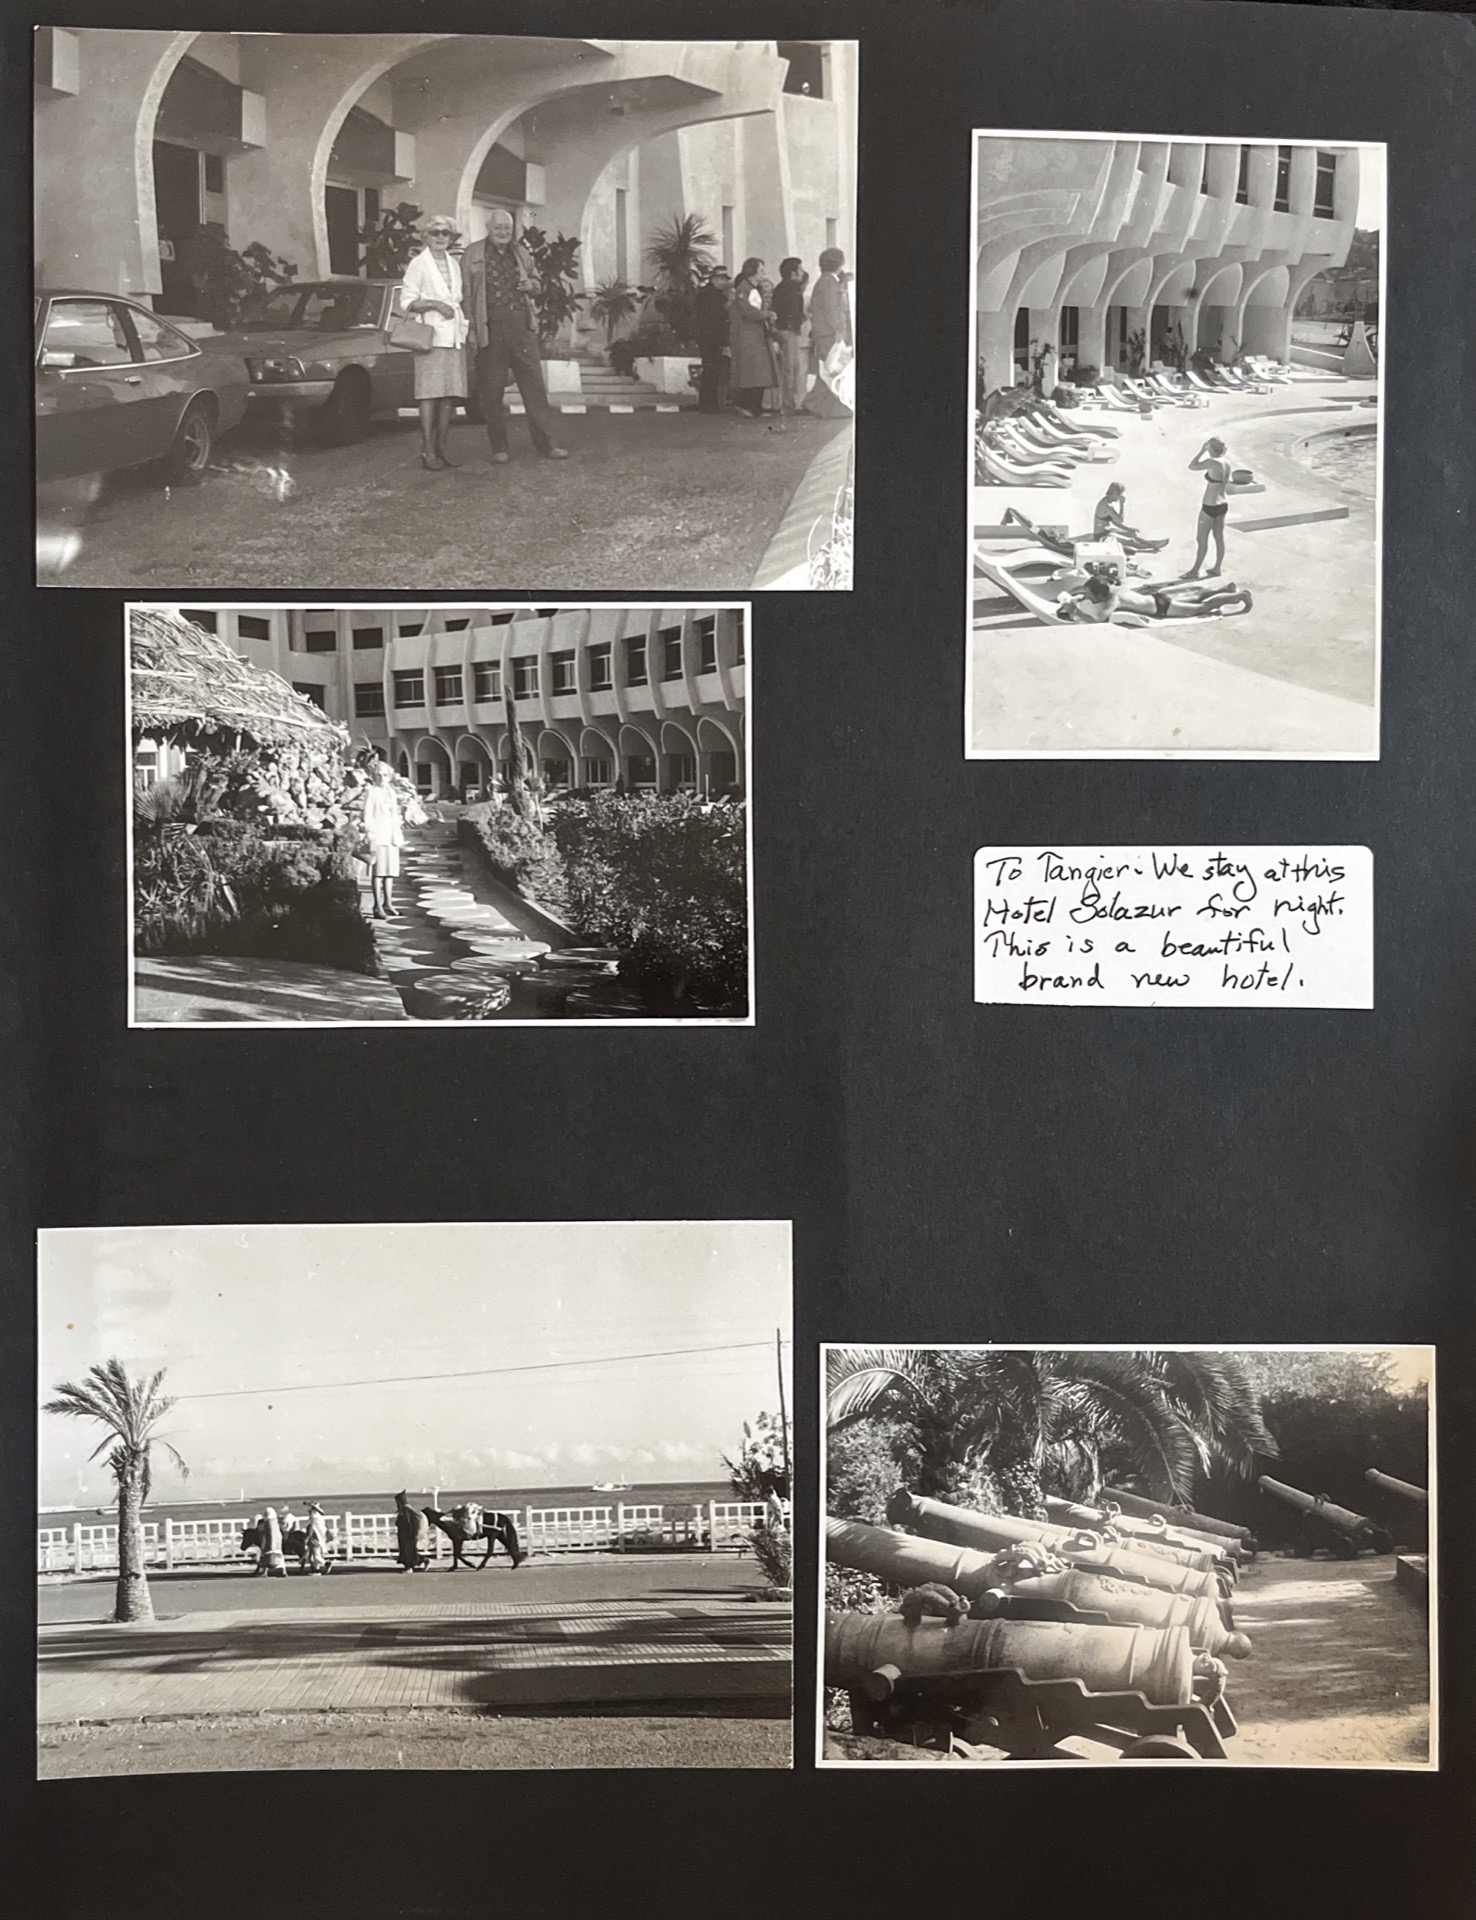 To Tangier. We stay at this
Hotel Solazur for night.
This is a beautiful
brand new hotel.